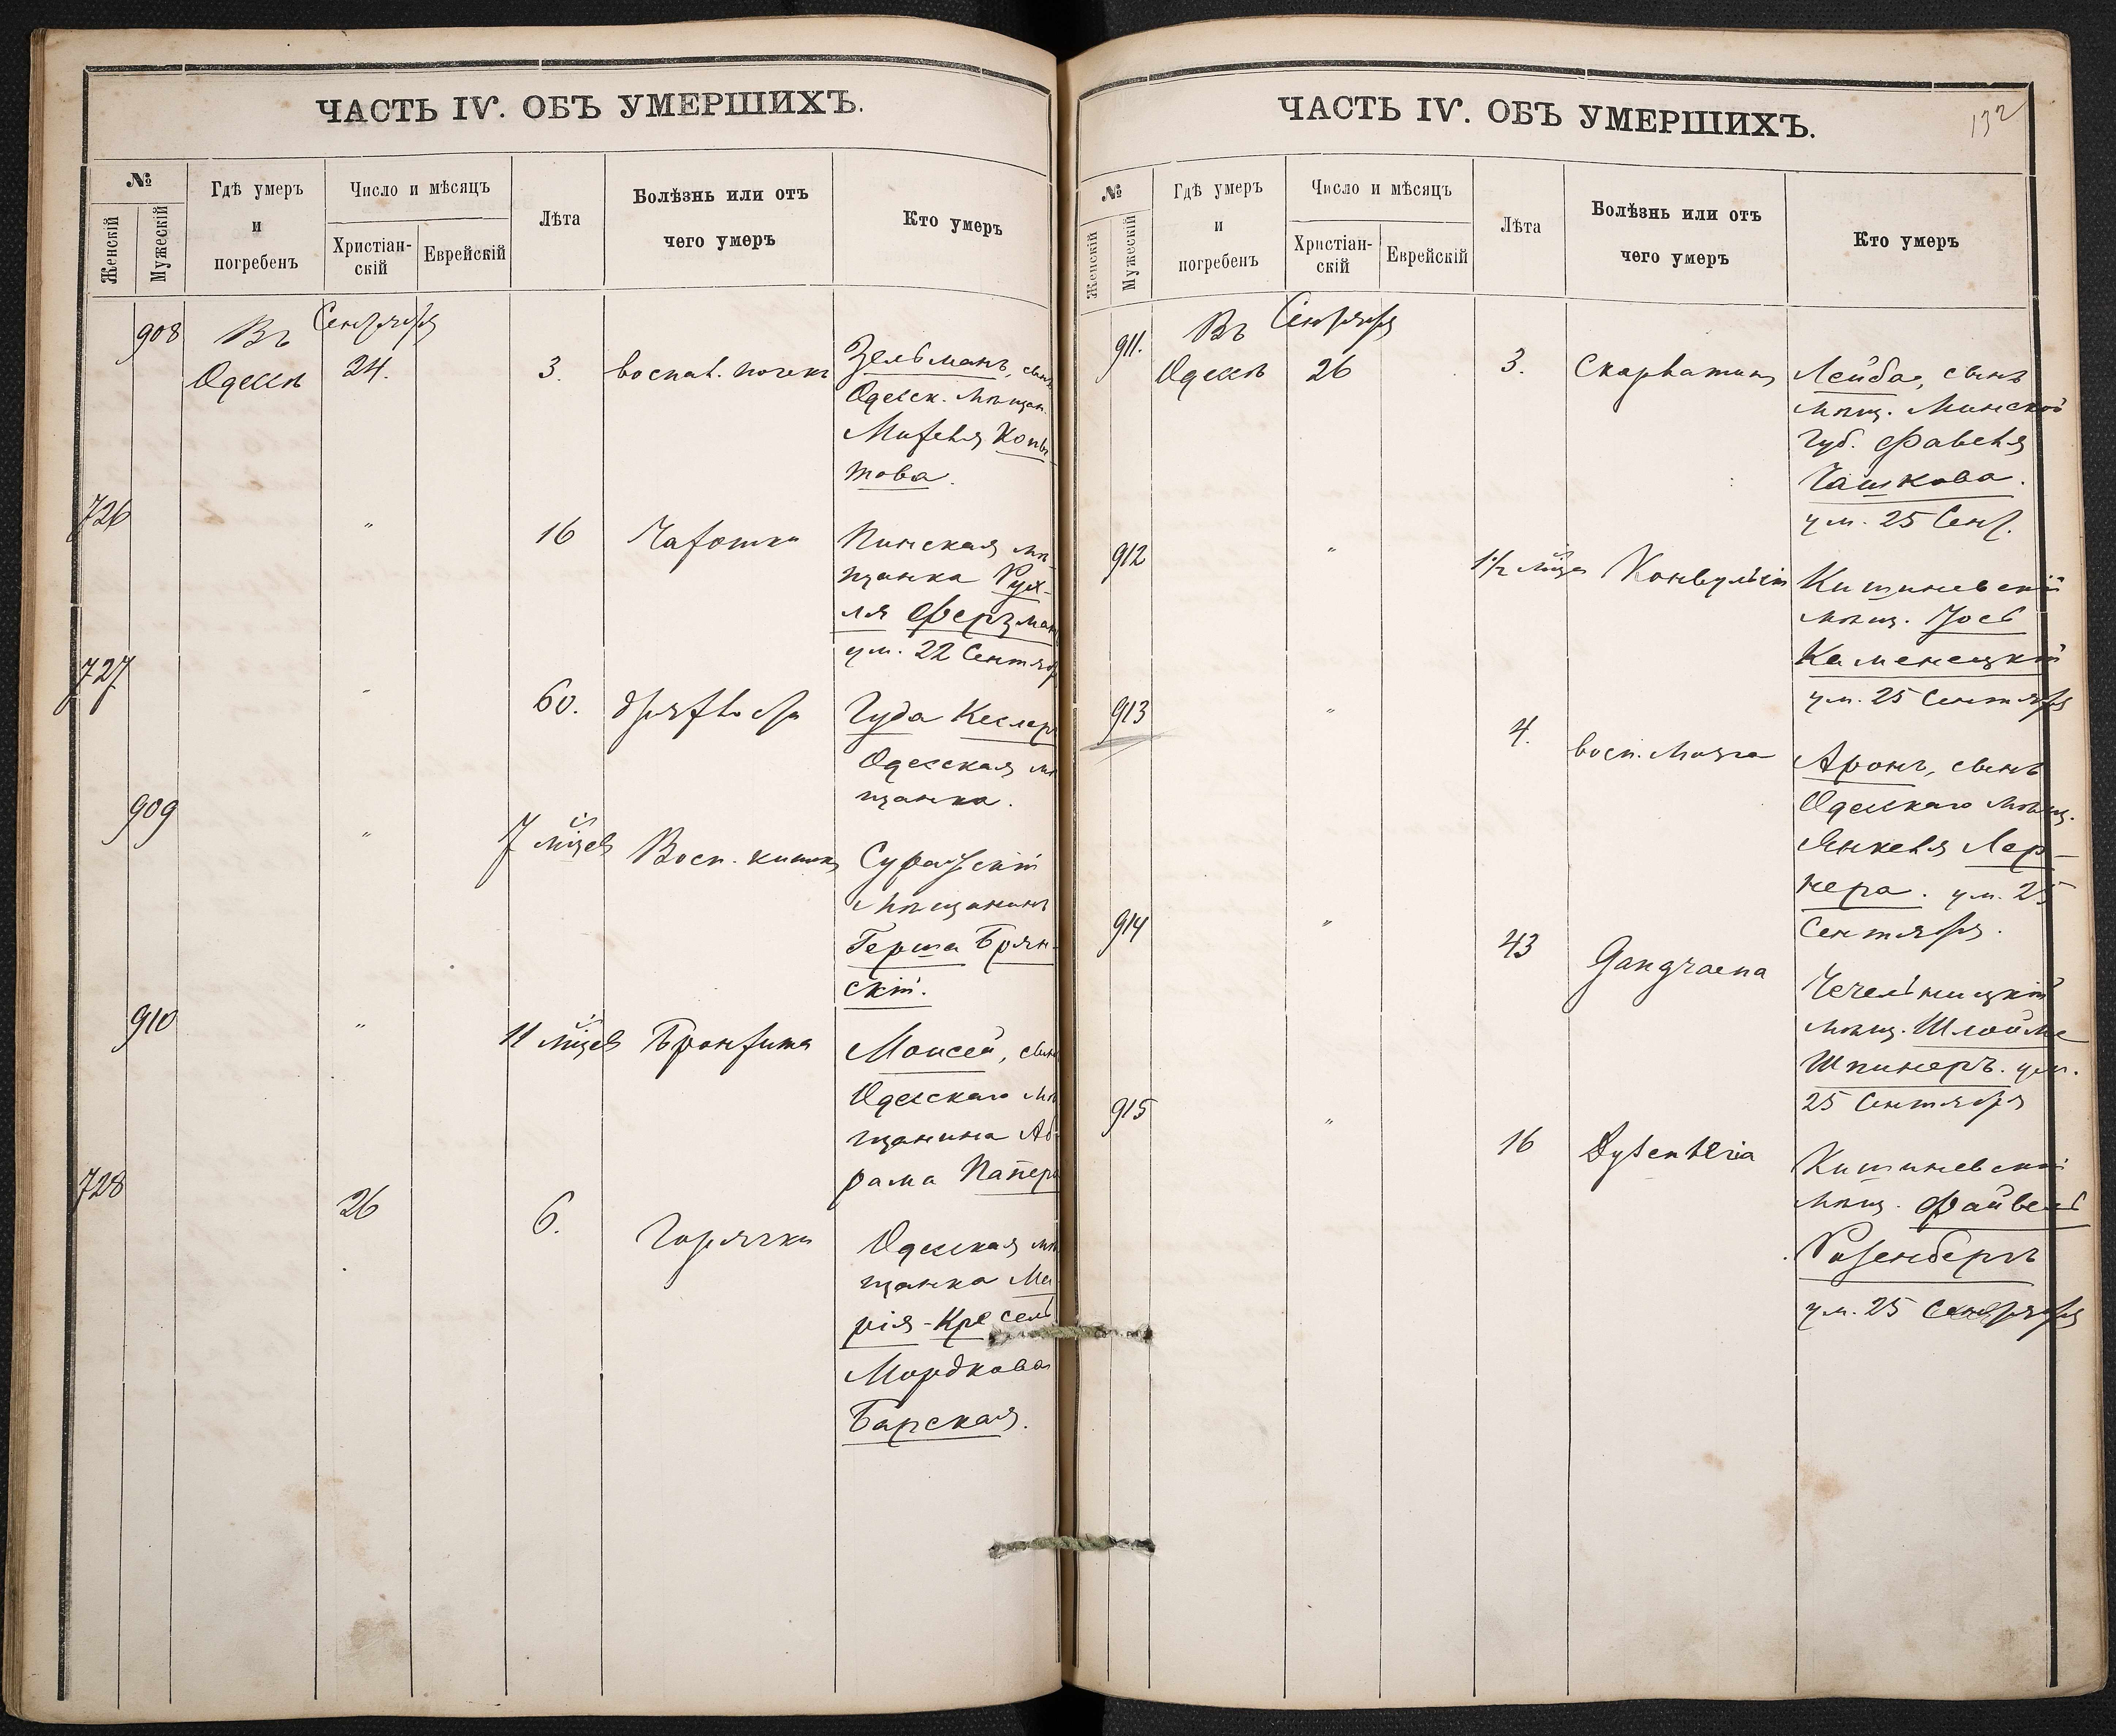 ЧАСТЬ IV. ОБЪ УМЕРШИХЪ.
№
Женскій
Мужескій
Гдѣ умеръ
и
погребенъ
Число и мѣсяцъ
Христіан-
скій
Еврейскій
Лѣта
Болѣзнь или отъ
чего умеръ
Кто умеръ
908
Въ
Одессѣ
Сентября
24.
3.
воспал. почекъ
Зельманъ, сынъ
Одесск. мѣщан.
Копы-
това.
726
"
16
Чахотки
Пинская мѣ-
щанка Рух-
ля Ферзман
ум. 22 Сентяб
727
"
60.
дряхлости
Гуда Кеслер
Одесская мѣ
щанка.
909
"
7 мѣсцев
Восп. кишекъ
Суражскій
Мѣщанинъ
Герша Брян-
скій.
910
"
11 мѣсцев
Бронхита
Моисей, сынъ
Одесскаго мѣ
щанина Аб-
рама Папер
728
26
6.
Горячки
Одесская мѣ
щанка Ма-
рія-Кресель
Мордкова
Барская.
ЧАСТЬ IV. ОБЪ УМЕРШИХЪ.
132
№
Женскій
Мужескій
Гдѣ умеръ
и
погребенъ
Число и мѣсяцъ
Христіан-
скій
Еврейскій
Лѣта
Болѣзнь или отъ
чего умеръ
Кто умеръ
911.
Въ
Одессѣ
Сентября
26
3.
Скарлатины
Лейба, сынъ
мѣщ. Минской
губ. Фавеля
Чашкова.
ум. 25 Сент.
912
"
1 1/2 мѣсца
Конвульсіи
Кишиневскій
мѣщ. Іось
Каменецкій
ум. 25 Сентября
913
"
4.
восп. мозга
Аронъ, сынъ
Одесскаго мѣщ.
Янкеля Лер-
нера. ум. 25
Сентября.
914
"
43
Gangraena
Чечельницкій
мѣщ. Шлойме
Шпинеръ. ум.
25 Сентября
915
"
16
Dysenteria
Кишиневскій
мѣщ. Файвель
Розенбергъ
ум. 25 Сентября